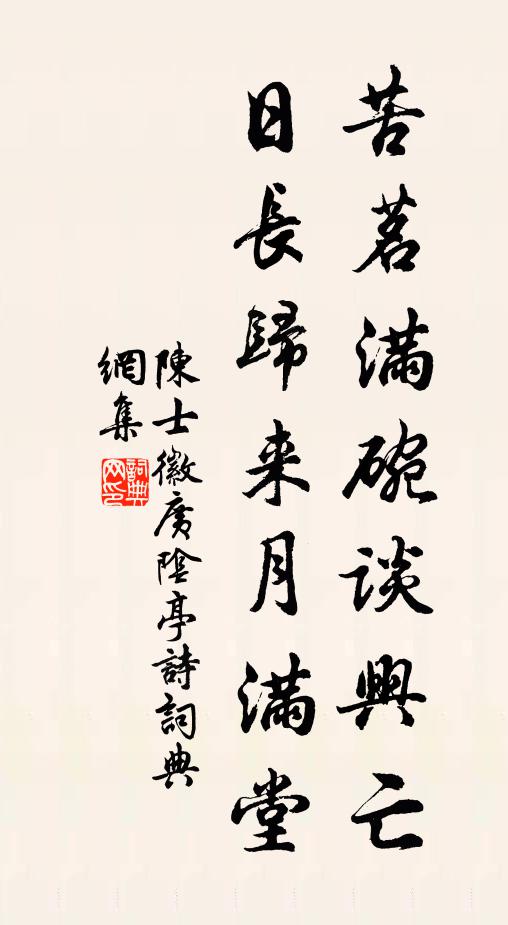 苦茗满碗談興亡
日長歸来月满堂
陳士徽廣陰亭詩詞典
網集
詞典网印